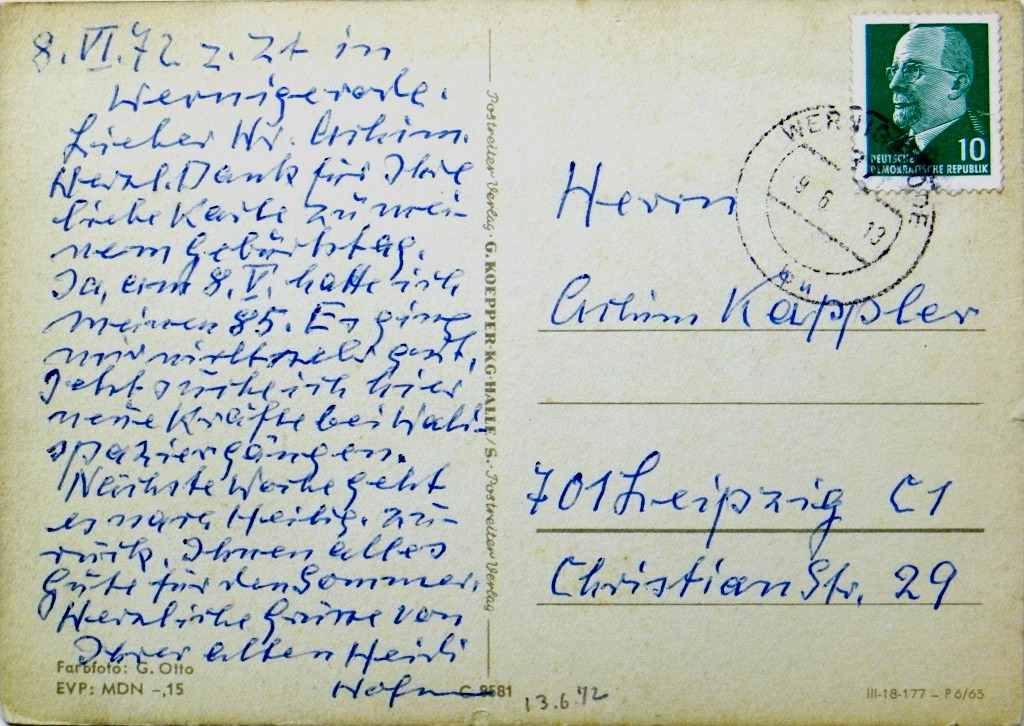 8.VI.72 z. Zt in
Wernigerode.
Lieber Hr. Achim.
Herzl. Dank für Ihre
liebe Karte zu mei-
nem Geburtstag.
Ja, am 8.V. hatte ich
meinen 85. Es ging
mir nicht sehr gut,
Jetzt suche ich hier
neue Kräfte bei Wald-
spaziergängen.
Nächste Woche geht
es nach Heilig. zu-
rück. Ihnen alles
Gute für den Sommer.
Herzliche Grüsse von
Ihrer alten Heidi
Farbfoto: G. Otto
EVP: MDN –,15
C 8581
13.6.72
Postreiter Verlag · G. KOEPPER·KG·HALLE/S. · Postreiter Verlag
DEUTSCHE
DEMOKRATISCHE REPUBLIK
10
WERNIGERODE
9 6 13
Herrn
Achim Käppler
701 Leipzig C1
Christianstr. 29
III-18-177 – P 6/65